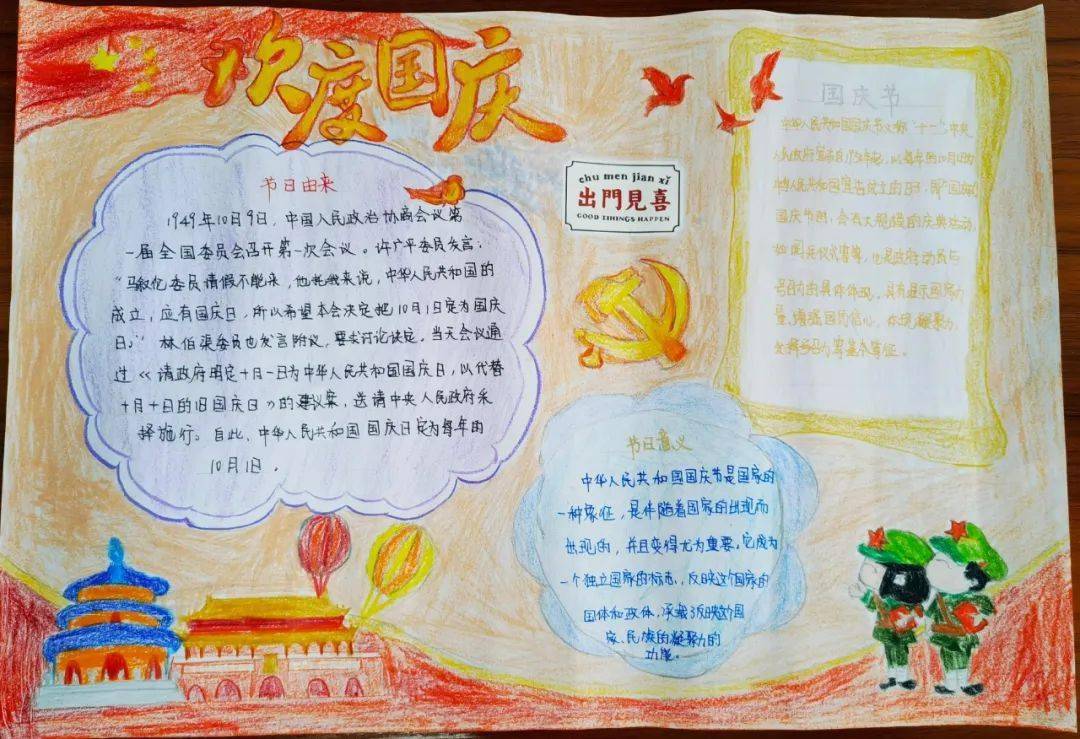 欢度国庆
节日由来
1949年10月9日，中国人民政治协商会议第
一届全国委员会召开第一次会议。许广平委员发言：
“马叙伦委员请假不能来，他托我来说，中华人民共和国的
成立，应有国庆日，所以希望本会决定把10月1日定为国庆
日。”林伯渠委员也发言附议，要求讨论决定。当天会议通
过《请政府明定十月一日为中华人民共和国国庆日，以代替
十月十日的旧国庆日》的建议案，送请中央人民政府采
择施行。自此，中华人民共和国国庆日定为每年的
10月1日。
chu men jian xǐ
出門見喜
GOOD THINGS HAPPEN
国庆节
中华人民共和国国庆节又称“十一”，中央
人民政府宣布自1949年起，以每年的10月1日为
中华人民共和国宣告成立的日子，即国庆
国庆节期，会有大规模的庆典活动，
如国兵仪式等等，也是政府动员与
号召力的具体体现，具有显示国家力
量，增强国民信心，体现凝聚力，
发挥号召力等基本特征。
节日意义
中华人民共和国国庆节是国家的
一种象征，是伴随着国家的出现而
出现的，并且变得尤为重要。它成为
一个独立国家的标志，反映这个国家的
国体和政体，承载了反映这个国
家、民族的凝聚力的
功能。